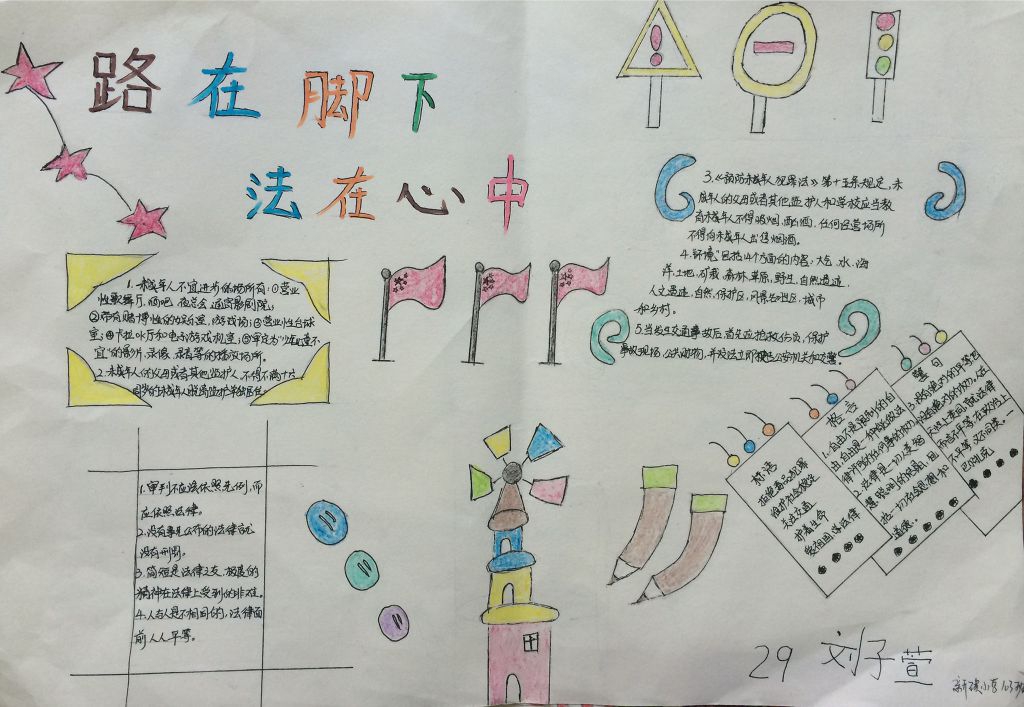 路在脚下
法在心中
3.《预防未成年人犯罪法》第十五条规定,未
成年人的父母或者其他监护人和学校应当教
育未成年人不得吸烟、酗酒,任何经营场所
不得向未成年人出售烟酒。
4.环境"包括14个方面的内容,大气、水、海
洋、土地、矿藏、森林、草原、野生、自然遗迹、
人文遗迹、自然、保护区、风景名胜区、城市
和乡村。
5.当发生交通事故后,首先应抢救伤员,保护
事故现场,公共财物,并设法立即报告公安机关和交警。
1.未成年人不宜进步的场所有:①营业
性歌舞厅、酒吧、夜总会、通宵影剧院;
②带有赌博性的娱乐室,游戏场;③营业性台球
室;④卡拉OK厅和电子游戏机室;⑤审定为"少年儿童不
宜"的影片、录像、录音等的播放场所。
2.未成年人的父母或者其他监护人,不得不满十六
周岁的未成年人脱离监护单独居住。
1.审判不应该依照先例,而
应依照法律。
2.没有事先公布的法律就
没有刑罚。
3.简短是法律之友,极度的
精神在法律上受到的非难。
4.人与人是不相同的,法律面
前人人平等。
标语
拒绝毒品犯罪
维护社会稳定
关注交通
护着生命
爱祖国、学法律
格言
1.自由不是限制的自
由,自由是一种能做法
律许可的任何事的权力。
2.法律是一切人类智
慧聪明的结晶,包
括一切社会思想和
道德。
警句
没有绝对的平等也
没有绝对的权力。在
天性上来问,就法律
而言平等,在政治上
不平等,又不可谈。一
巴尔扎克
29 刘子萱
新建小学103班